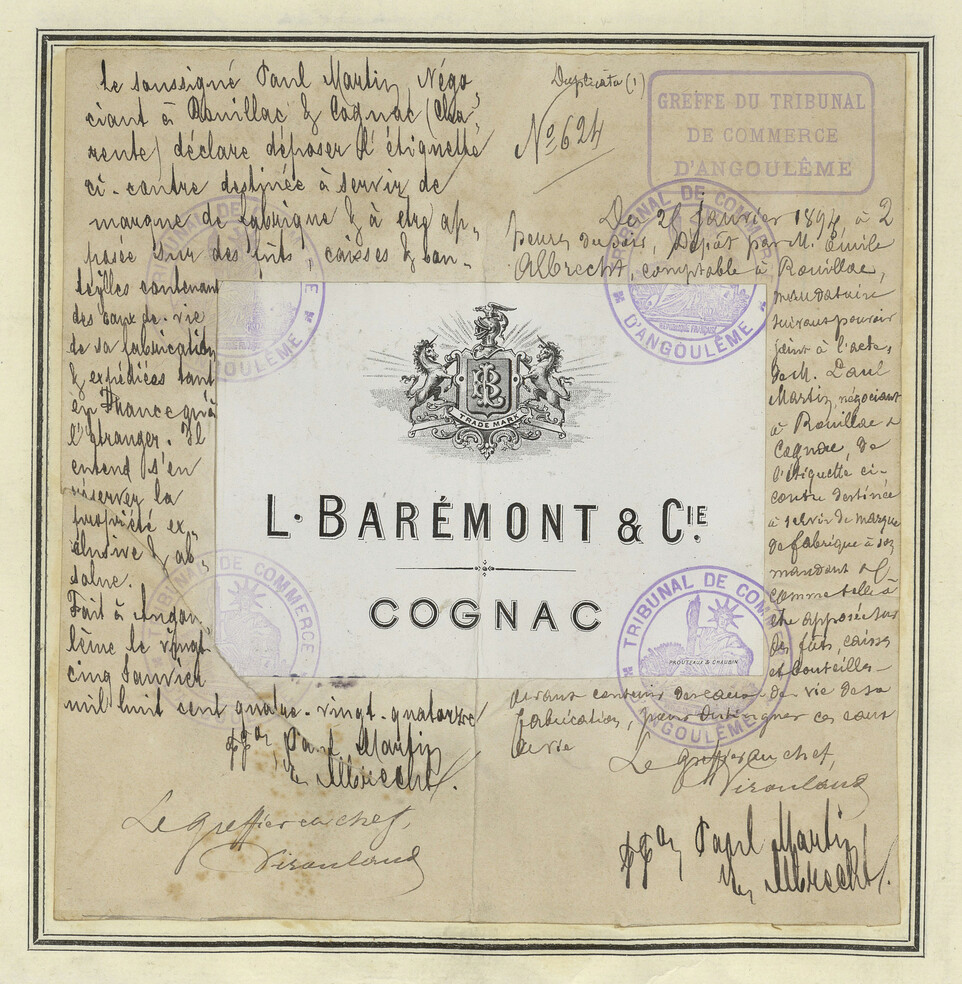 Le soussigné Paul Martin Négo-
ciant à Rouillac & Cognac (Cha-
rente) déclare déposer l'étiquette
ci-contre destinée à servir de
marque de fabrique & à être ap-
posée sur des fûts, caisses & bou-
teilles contenant
des eaux-de-vie
de sa fabrication
& expédiées tant
en France qu'à
l'étranger. Il
entend s'en
réserver la
propriété ex-
clusive & ab-
solue.
Fait à Angou-
lême le vingt
cinq Janvier
mil huit cent quatre-vingt-quatorze
Paul Martin
Em Albrecht
Le greffier en chef,
Duplicata (1)
No 624
GREFFE DU TRIBUNAL
DE COMMERCE
D'ANGOULÊME
Janvier 1894, à 2
heures du soir, Dépôt par M. Émile
Albrecht, comptable à Rouillac,
mandataire
suivant pouvoir
joint à l'acte,
de M. Paul
Martin négociant
à Rouillac &
Cognac, de
l'étiquette ci-
contre destinée
à servir de marque
de fabrique à son
mandant &
comme telle à
être apposée sur
des fûts, caisses
et bouteilles
devant contenir des eaux-de-vie de sa
fabrication, pour distinguer ces eaux
de vie
Le greffier en chef,
Paul Martin
Em Albrecht
TRADE MARK
L. BARÉMONT & CIE.
COGNAC
PROUTEAUX & CHAUBIN
TRIBUNAL DE COMMERCE
D'ANGOULÊME
RÉPUBLIQUE FRANÇAISE
TRIBUNAL DE COMMERCE
D'ANGOULÊME